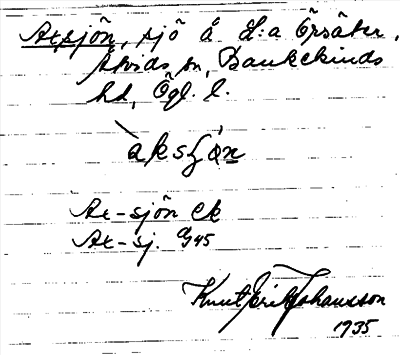 Axsjön, sjö å L:a Örsätter,
Åtvids sn, Bankekinds
hd, Ögl. l.
àksʃȯn
Ax-sjön Ek
Ax-sj. G45
Knut Erik Johansson
1935